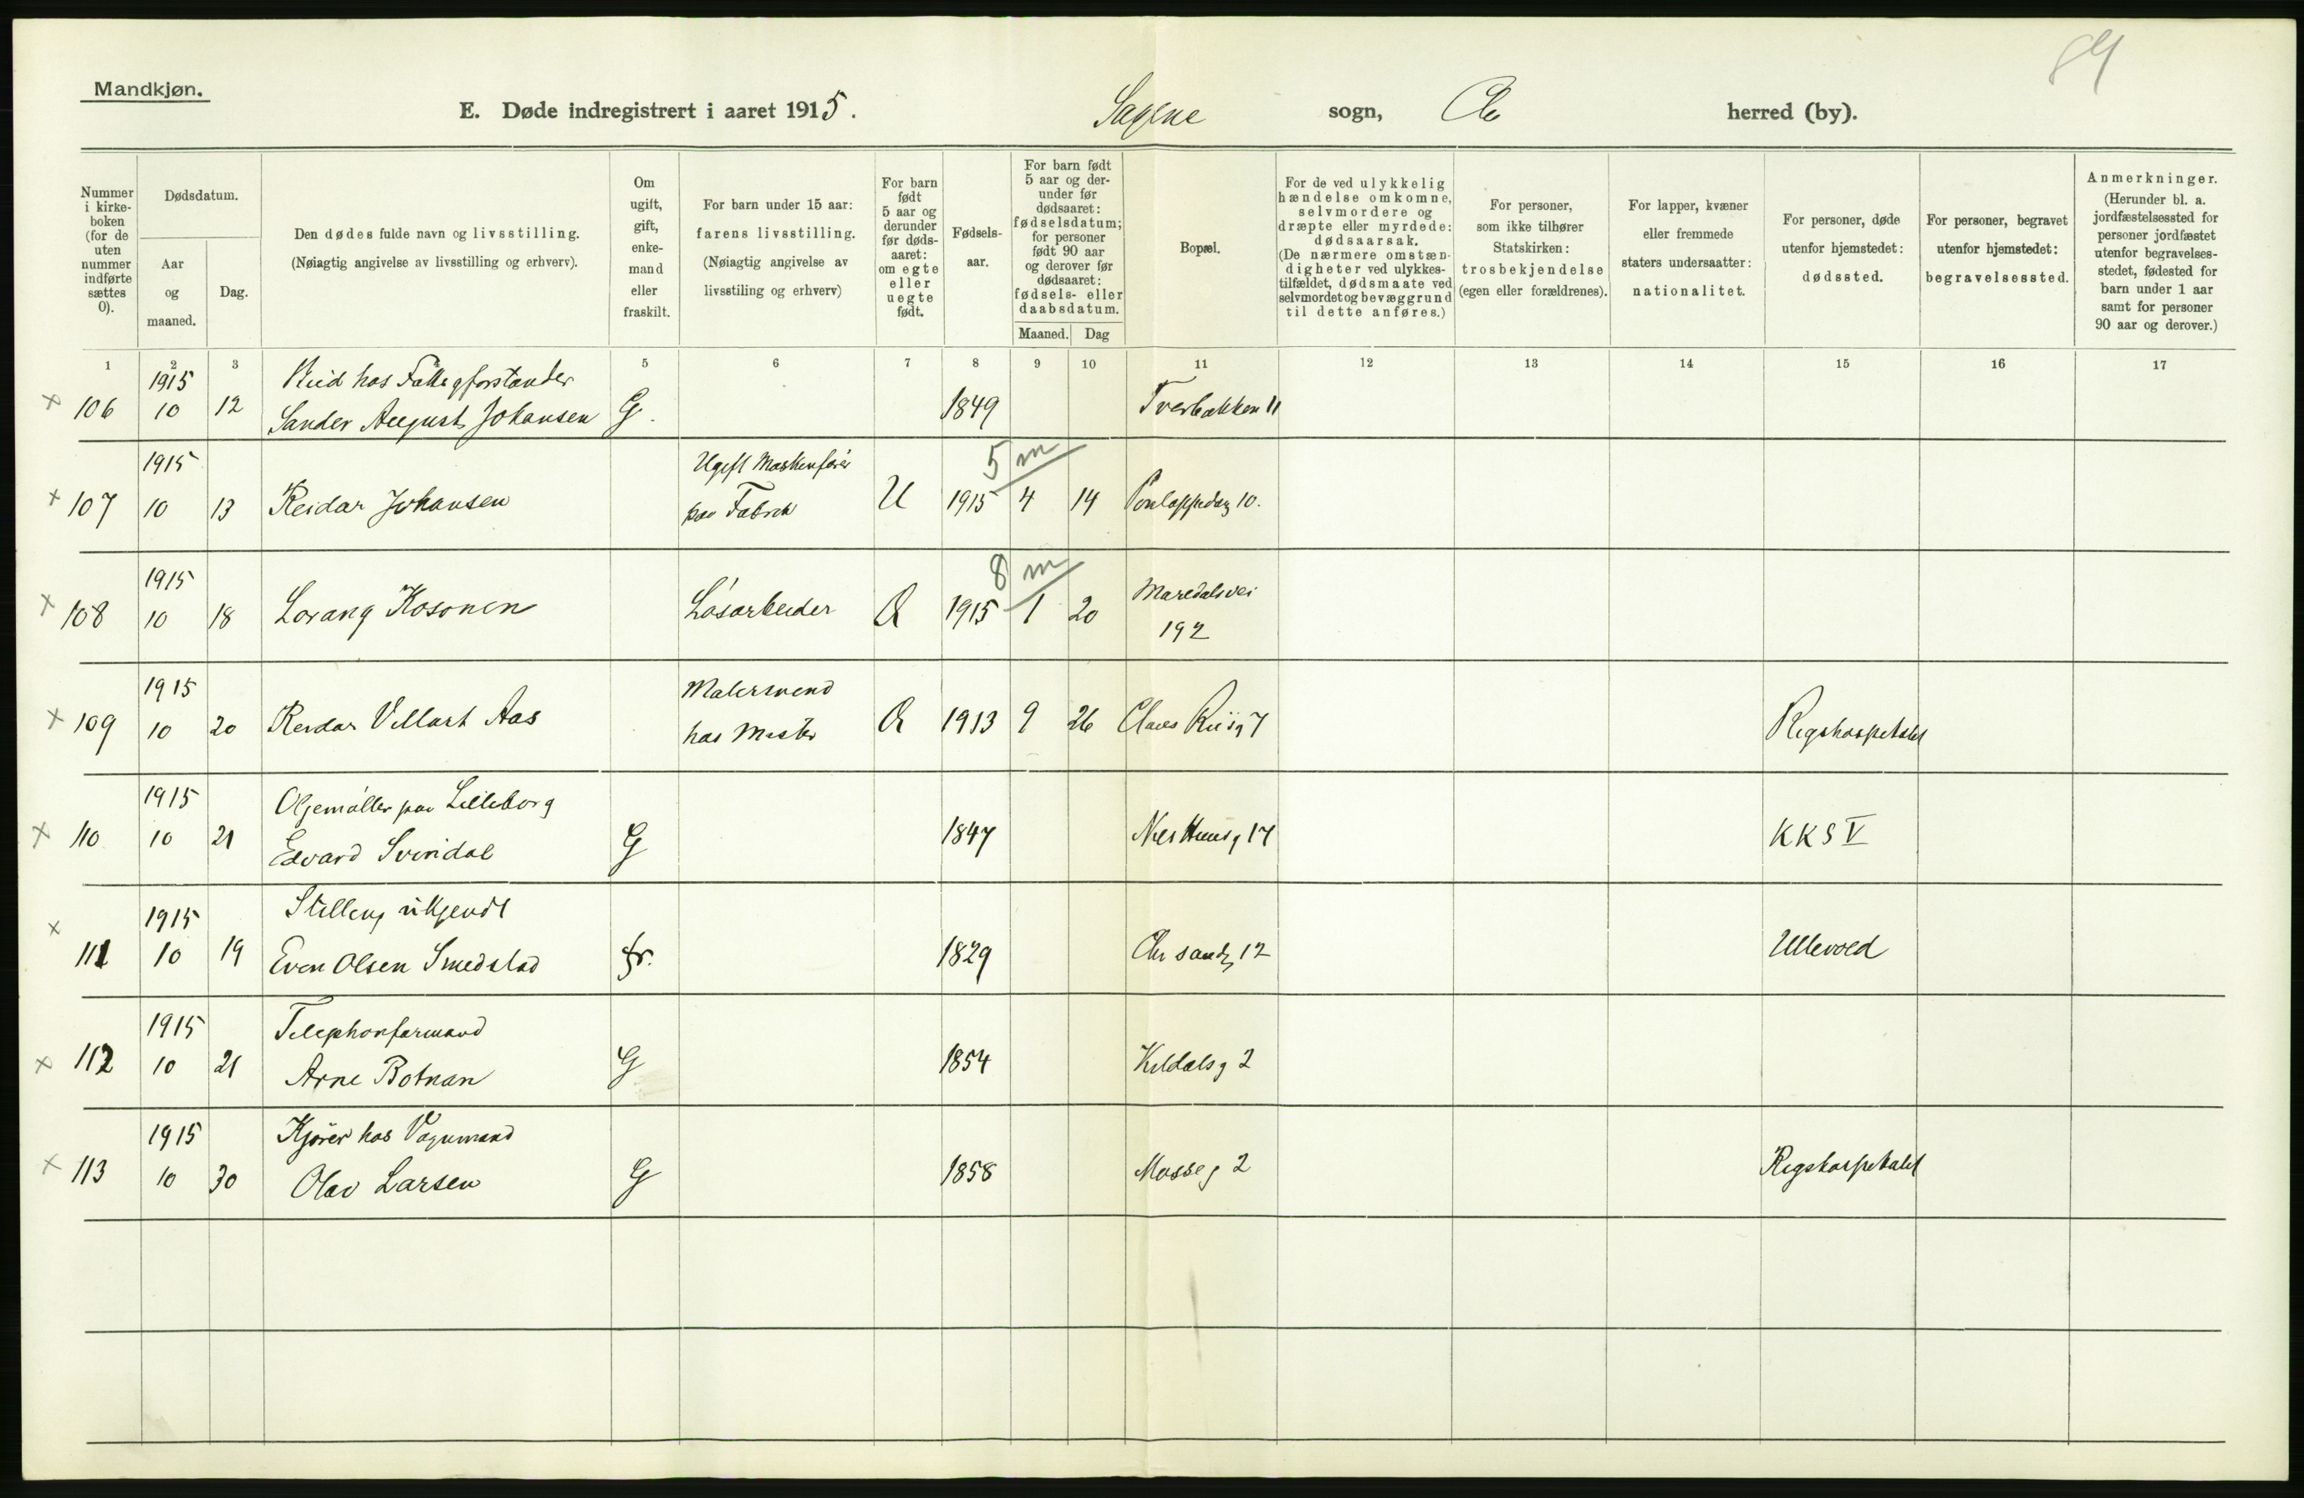 84
Mandkjøn.
E. Døde indregistrert i aaret 1915. Sagene sogn, herred (by).
Nummer i kirke-boken (for de uten nummer indførte sættes 0).
Dødsdatum.
Aar og maaned.
Dag.
Den dødes fulde navn og livsstilling.
(Nøiagtig angivelse av livsstilling og erhverv).
Om ugift, gift, enke-mand eller fraskilt.
For barn under 15 aar: farens livsstilling.
(Nøiagtig angivelse av livsstiling og erhverv)
For barn født 5 aar og derunder før døds-aaret: om egte eller uegte født.
Fødsels-aar.
For barn født 5 aar og der-under før dødsaaret: fødselsdatum; for personer født 90 aar og derover før dødsaaret: fødsels- eller daabsdatum.
Maaned. Dag
Bopæl.
For de ved ulykkelig hændelse omkomne, selvmordere og dræpte eller myrdede: dødsaarsak. (De nærmere omstæn-digheter ved ulykkes-tilfældet, dødsmaate ved selvmordet og bevæggrund til dette anføres.)
For personer, som ikke tilhører Statskirken: trosbekjendelse (egen eller forældrenes).
For lapper, kvæner eller fremmede staters undersaatter: nationalitet.
For personer, døde utenfor hjemstedet: dødssted.
For personer, begravet utenfor hjemstedet: begravelsessted.
Anmerkninger.
(Herunder bl. a. jordfæstelsessted for personer jordfæstet utenfor begravelses-stedet, fødested for barn under 1 aar samt for personer 90 aar og derover.)
1 2 3 5 6 7 8 9 10 11 12 13 14 15 16 17
1915
× 106 10 12 Sander August Johansen G. 1849 Tverbakken 11
1915 Ugift 5 m
× 107 10 13 Reidar Johansen paa Fabrik U 1915 4 14 10.
1915 8 m Maredalsvei
× 108 10 18 Lorang Kosonen Løsarbeider 1915 1 20
192
1915 Malersvend
× 109 10 20 Reidar Villart Aas hos Mester 1913 9 26 Claus Riisg 7 Rigshospitalet
1915 Oljemøller paa Lilleborg
× 110 10 21 Edvard Svindal G 1847 17 KKS V
1915 Stilling ukjendt
× 111 10 19 Even Olsen Smedstad fr. 1829 12 Ullevold
1915 Telephonformand
× 112 10 21 Arne Botnan G 1854 Kildalsg 2
1915 Kjører hos Vognmand
× 113 10 30 Olav Larsen G 1858 Mosseg 2 Rigshospitalet